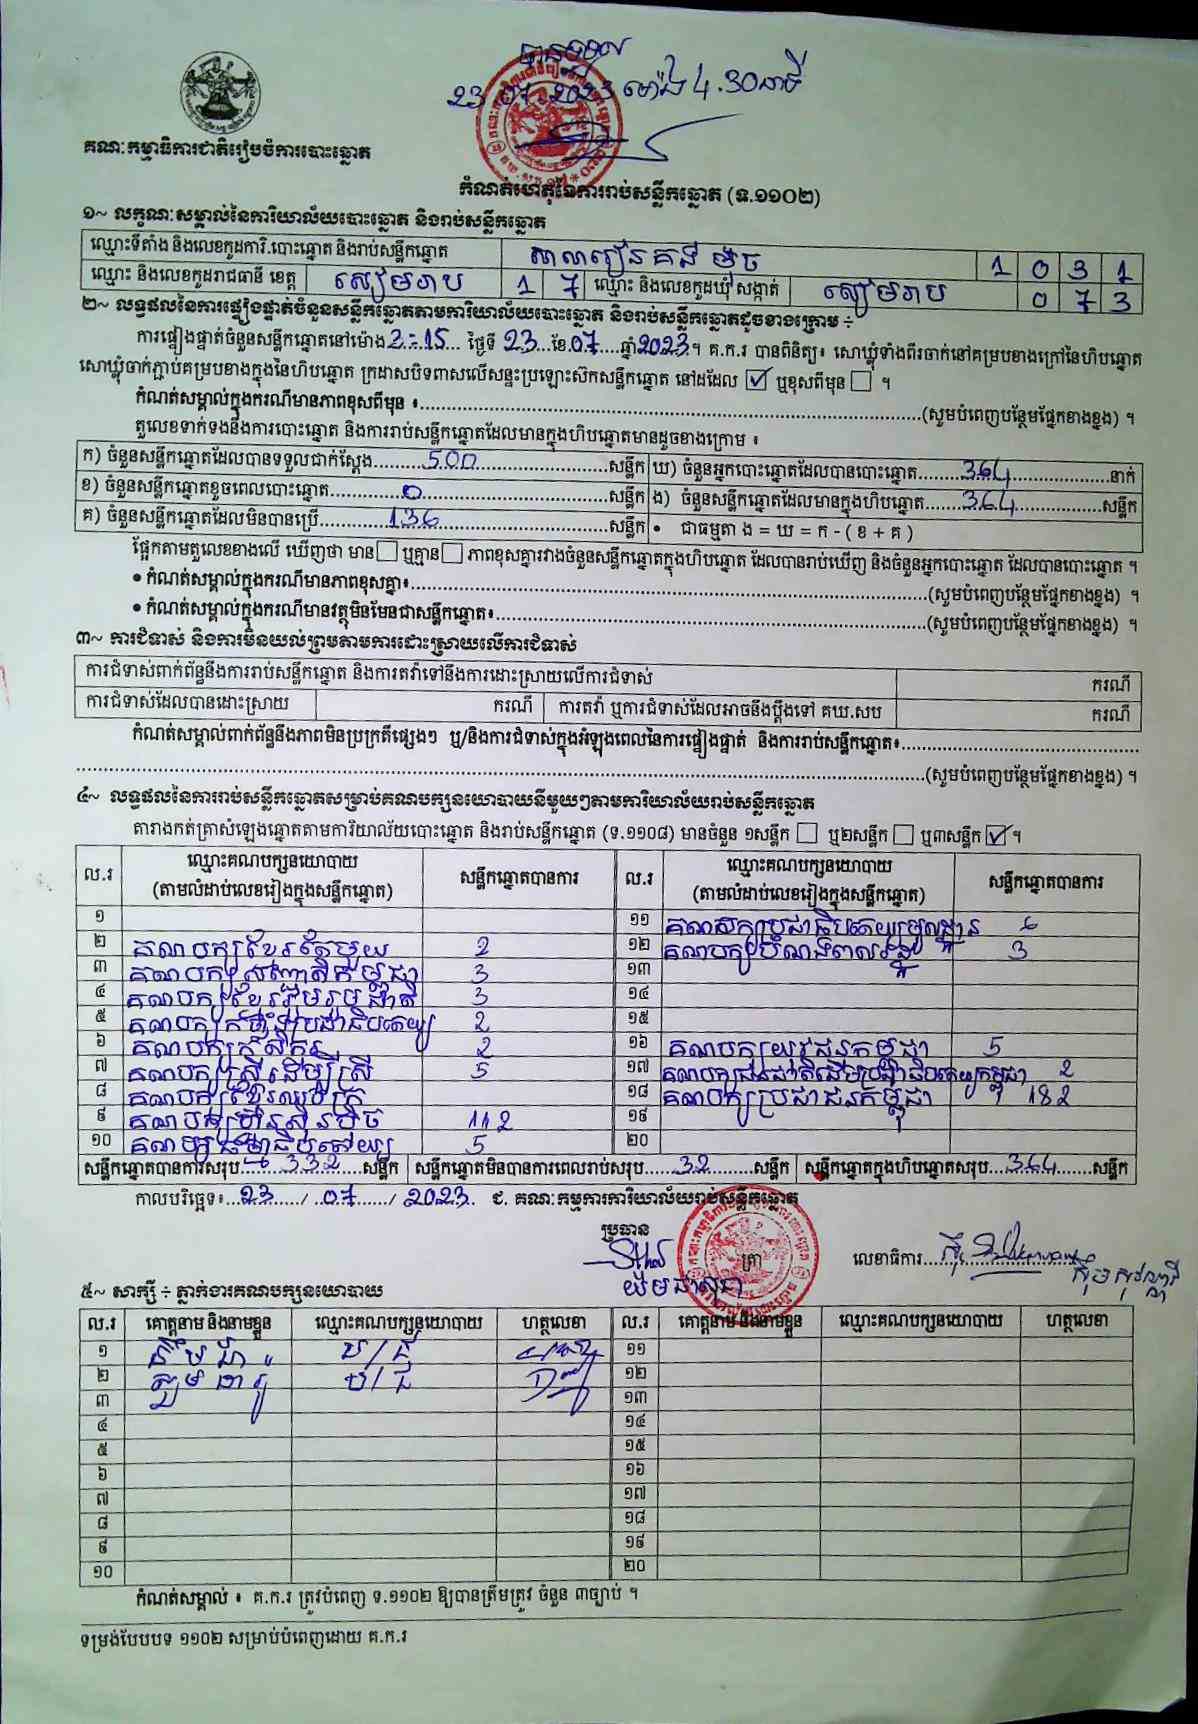 បានទទួល
23 07 2023 ម៉ោង 4.30នាទី
គណៈកម្មាធិការជាតិរៀបចំការបោះឆ្នោត
កំណត់ហេតុនៃការរាប់សន្លឹកឆ្នោត (ទ.១១០២)
១~ លក្ខណៈសម្គាល់នៃការិយាល័យបោះឆ្នោត និងរាប់សន្លឹកឆ្នោត
ឈ្មោះទីតាំង និងលេខកូដការិ.បោះឆ្នោត និងរាប់សន្លឹកឆ្នោត 1 0 3 1
ឈ្មោះ និងលេខកូដរាជធានី ខេត្ត សៀមរាប 1 7 ឈ្មោះ និងលេខកូដឃុំ សង្កាត់ សៀមរាប 0 7 3
២~ លទ្ធផលនៃការផ្ទៀងផ្ទាត់ចំនួនសន្លឹកឆ្នោតតាមការិយាល័យបោះឆ្នោត និងរាប់សន្លឹកឆ្នោតដូចខាងក្រោម ÷
ការផ្ទៀងផ្ទាត់ចំនួនសន្លឹកឆ្នោតនៅម៉ោង 3-15 ថ្ងៃទី 23 ខែ 07 ឆ្នាំ 2023 ។ គ.ក.រ បានពិនិត្យ៖ សោឃ្លុំទាំងពីរចាក់នៅគម្របខាងក្រៅនៃហិបឆ្នោត
សោឃ្លុំចាក់ភ្ជាប់គម្របខាងក្នុងនៃហិបឆ្នោត ក្រដាសបិទពាសលើសន្ទះប្រឡោះស៊កសន្លឹកឆ្នោត នៅដដែល ☑ ឬខុសពីមុន ☐ ។
កំណត់សម្គាល់ក្នុងករណីមានភាពខុសពីមុន ៖ (សូមបំពេញបន្ថែមផ្នែកខាងខ្នង) ។
តួលេខទាក់ទងនឹងការបោះឆ្នោត និងការរាប់សន្លឹកឆ្នោតដែលមានក្នុងហិបឆ្នោតមានដូចខាងក្រោម ៖
ក) ចំនួនសន្លឹកឆ្នោតដែលបានទទួលជាក់ស្តែង 500 សន្លឹក ឃ) ចំនួនអ្នកបោះឆ្នោតដែលបានបោះឆ្នោត 364 នាក់
ខ) ចំនួនសន្លឹកឆ្នោតខូចពេលបោះឆ្នោត 0 សន្លឹក ង) ចំនួនសន្លឹកឆ្នោតដែលមានក្នុងហិបឆ្នោត 364 សន្លឹក
គ) ចំនួនសន្លឹកឆ្នោតដែលមិនបានប្រើ 136 សន្លឹក • ជាធម្មតា ង = ឃ = ក - ( ខ + គ )
ផ្អែកតាមតួលេខខាងលើ ឃើញថា មាន ☐ ឬគ្មាន ☐ ភាពខុសគ្នារវាងចំនួនសន្លឹកឆ្នោតក្នុងហិបឆ្នោត ដែលបានរាប់ឃើញ និងចំនួនអ្នកបោះឆ្នោត ដែលបានបោះឆ្នោត ។
• កំណត់សម្គាល់ក្នុងករណីមានភាពខុសគ្នា៖ (សូមបំពេញបន្ថែមផ្នែកខាងខ្នង) ។
• កំណត់សម្គាល់ក្នុងករណីមានវត្ថុមិនមែនជាសន្លឹកឆ្នោត៖ (សូមបំពេញបន្ថែមផ្នែកខាងខ្នង) ។
៣~ ការជំទាស់ និងការមិនយល់ព្រមតាមការដោះស្រាយលើការជំទាស់
ការជំទាស់ពាក់ព័ន្ធនឹងការរាប់សន្លឹកឆ្នោត និងការតវ៉ាទៅនឹងការដោះស្រាយលើការជំទាស់ ករណី
ការជំទាស់ដែលបានដោះស្រាយ ករណី ការតវ៉ា ឬការជំទាស់ដែលអាចនឹងប្តឹងទៅ គឃ.សប ករណី
កំណត់សម្គាល់ពាក់ព័ន្ធនឹងភាពមិនប្រក្រតីផ្សេងៗ ឬ/និងការជំទាស់ក្នុងអំឡុងពេលនៃការផ្ទៀងផ្ទាត់ និងការរាប់សន្លឹកឆ្នោត៖
(សូមបំពេញបន្ថែមផ្នែកខាងខ្នង) ។
៤~ លទ្ធផលនៃការរាប់សន្លឹកឆ្នោតសម្រាប់គណបក្សនយោបាយនីមួយៗតាមការិយាល័យរាប់សន្លឹកឆ្នោត
តារាងកត់ត្រាសំឡេងឆ្នោតតាមការិយាល័យបោះឆ្នោត និងរាប់សន្លឹកឆ្នោត (ទ.១១០៨) មានចំនួន ១សន្លឹក ☐ ឬ២សន្លឹក ☐ ឬ៣សន្លឹក ☑ ។
ល.រ ឈ្មោះគណបក្សនយោបាយ (តាមលំដាប់លេខរៀងក្នុងសន្លឹកឆ្នោត) សន្លឹកឆ្នោតបានការ ល.រ ឈ្មោះគណបក្សនយោបាយ (តាមលំដាប់លេខរៀងក្នុងសន្លឹកឆ្នោត) សន្លឹកឆ្នោតបានការ
១ ១១ គណបក្សប្រជាធិបតេយ្យមូលដ្ឋាន 6
២ គណបក្សខ្មែរតែមួយ 2 ១២ គណបក្សបំណងពលរដ្ឋ 3
៣ គណបក្ស សញ្ជាតិកម្ពុជា 3 ១៣
៤ គណបក្សខ្មែររួបរួមជាតិ 3 ១៤
៥ គណបក្សកម្លាំងប្រជាធិបតេយ្យ 2 ១៥
៦ គណបក្សកសិករ 2 ១៦ គណបក្សយុវជនកម្ពុជា 5
៧ គណបក្សស្ត្រីដើម្បីស្ត្រី 5 ១៧ គណបក្សជនជាតិដើមប្រជាធិបតេយ្យកម្ពុជា 2
៨ គណបក្សខ្មែរឈប់ក្រ ១៨ គណបក្សប្រជាជនកម្ពុជា 182
៩ គណបក្សហ៊្វុនស៊ិនប៉ិច 112 ១៩
១០ គណបក្សធម្មាធិបតេយ្យ 5 ២០
សន្លឹកឆ្នោតបានការសរុប 332 សន្លឹក សន្លឹកឆ្នោតមិនបានការពេលរាប់សរុប 32 សន្លឹក សន្លឹកឆ្នោតក្នុងហិបឆ្នោតសរុប 364 សន្លឹក
កាលបរិច្ឆេទ៖ 23 / 07 / 2023 ជ. គណៈកម្មការការិយាល័យរាប់សន្លឹកឆ្នោត
ប្រធាន ត្រា លេខាធិការ
៥~ សាក្សី ÷ ភ្នាក់ងារគណបក្សនយោបាយ
ល.រ គោត្តនាម និងនាមខ្លួន ឈ្មោះគណបក្សនយោបាយ ហត្ថលេខា ល.រ គោត្តនាម និងនាមខ្លួន ឈ្មោះគណបក្សនយោបាយ ហត្ថលេខា
១ ប/ជ ១១
២ ប/ជ ១២
៣ ១៣
៤ ១៤
៥ ១៥
៦ ១៦
៧ ១៧
៨ ១៨
៩ ១៩
១០ ២០
កំណត់សម្គាល់ ៖ គ.ក.រ ត្រូវបំពេញ ទ.១១០២ ឱ្យបានត្រឹមត្រូវ ចំនួន ៣ច្បាប់ ។
ទម្រង់បែបបទ ១១០២ សម្រាប់បំពេញដោយ គ.ក.រ